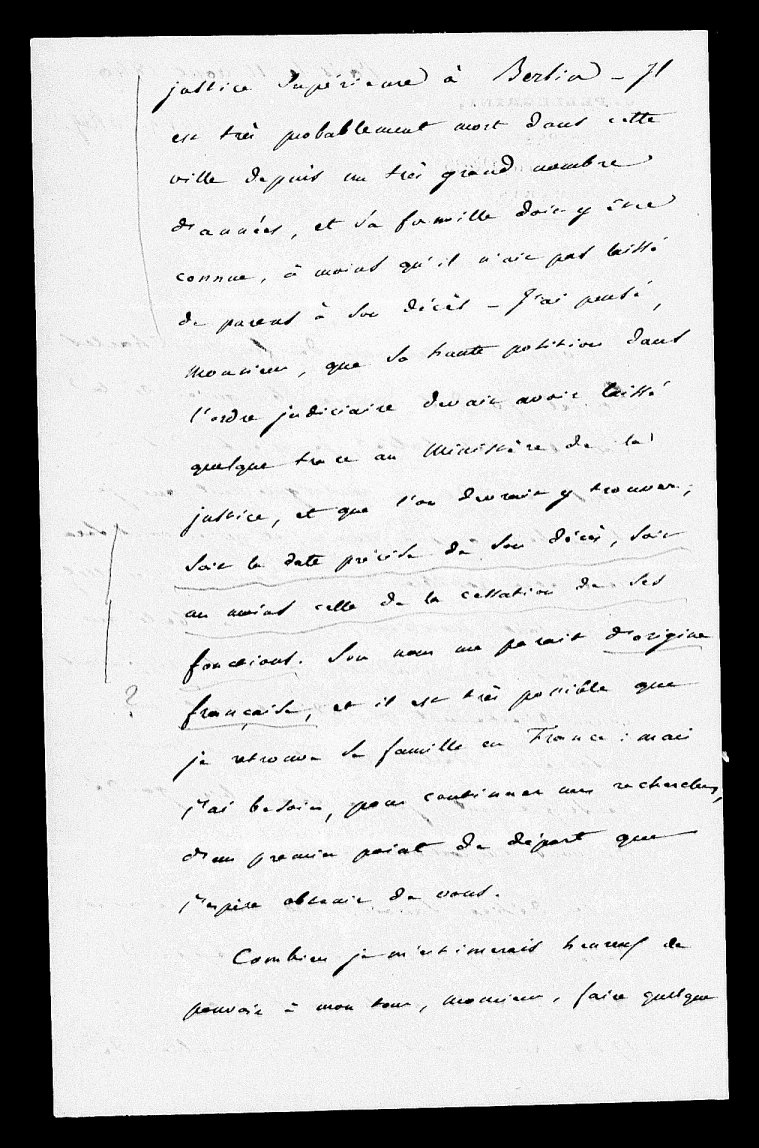 justice Supérieure à Berlin - Il
est très probablement mort dans cette
ville depuis un très grand nombre
d'années, et sa famille doit y être
connue, à moins qu'il n'ait pas laissé
de parens à son décès - J'ai pensé,
Monsieur, que sa haute position dans
l'ordre judiciaire devait avoir laissé
quelque trace au Ministère de la
justice, et que l'on devrait y trouver,
soit la date précise de son décès, soit
au moins celle de la cessation de ses
fonctions. Son nom me parait d'origine
?
française, et il est très possible que
je retrouve sa famille en France : mais
j'ai besoin, pour continuer mes recherches,
d'un premier point de départ que
j'espère obtenir de vous.
Combien je m'estimerais heureux de
pouvoir à mon tour, monsieur, faire quelque